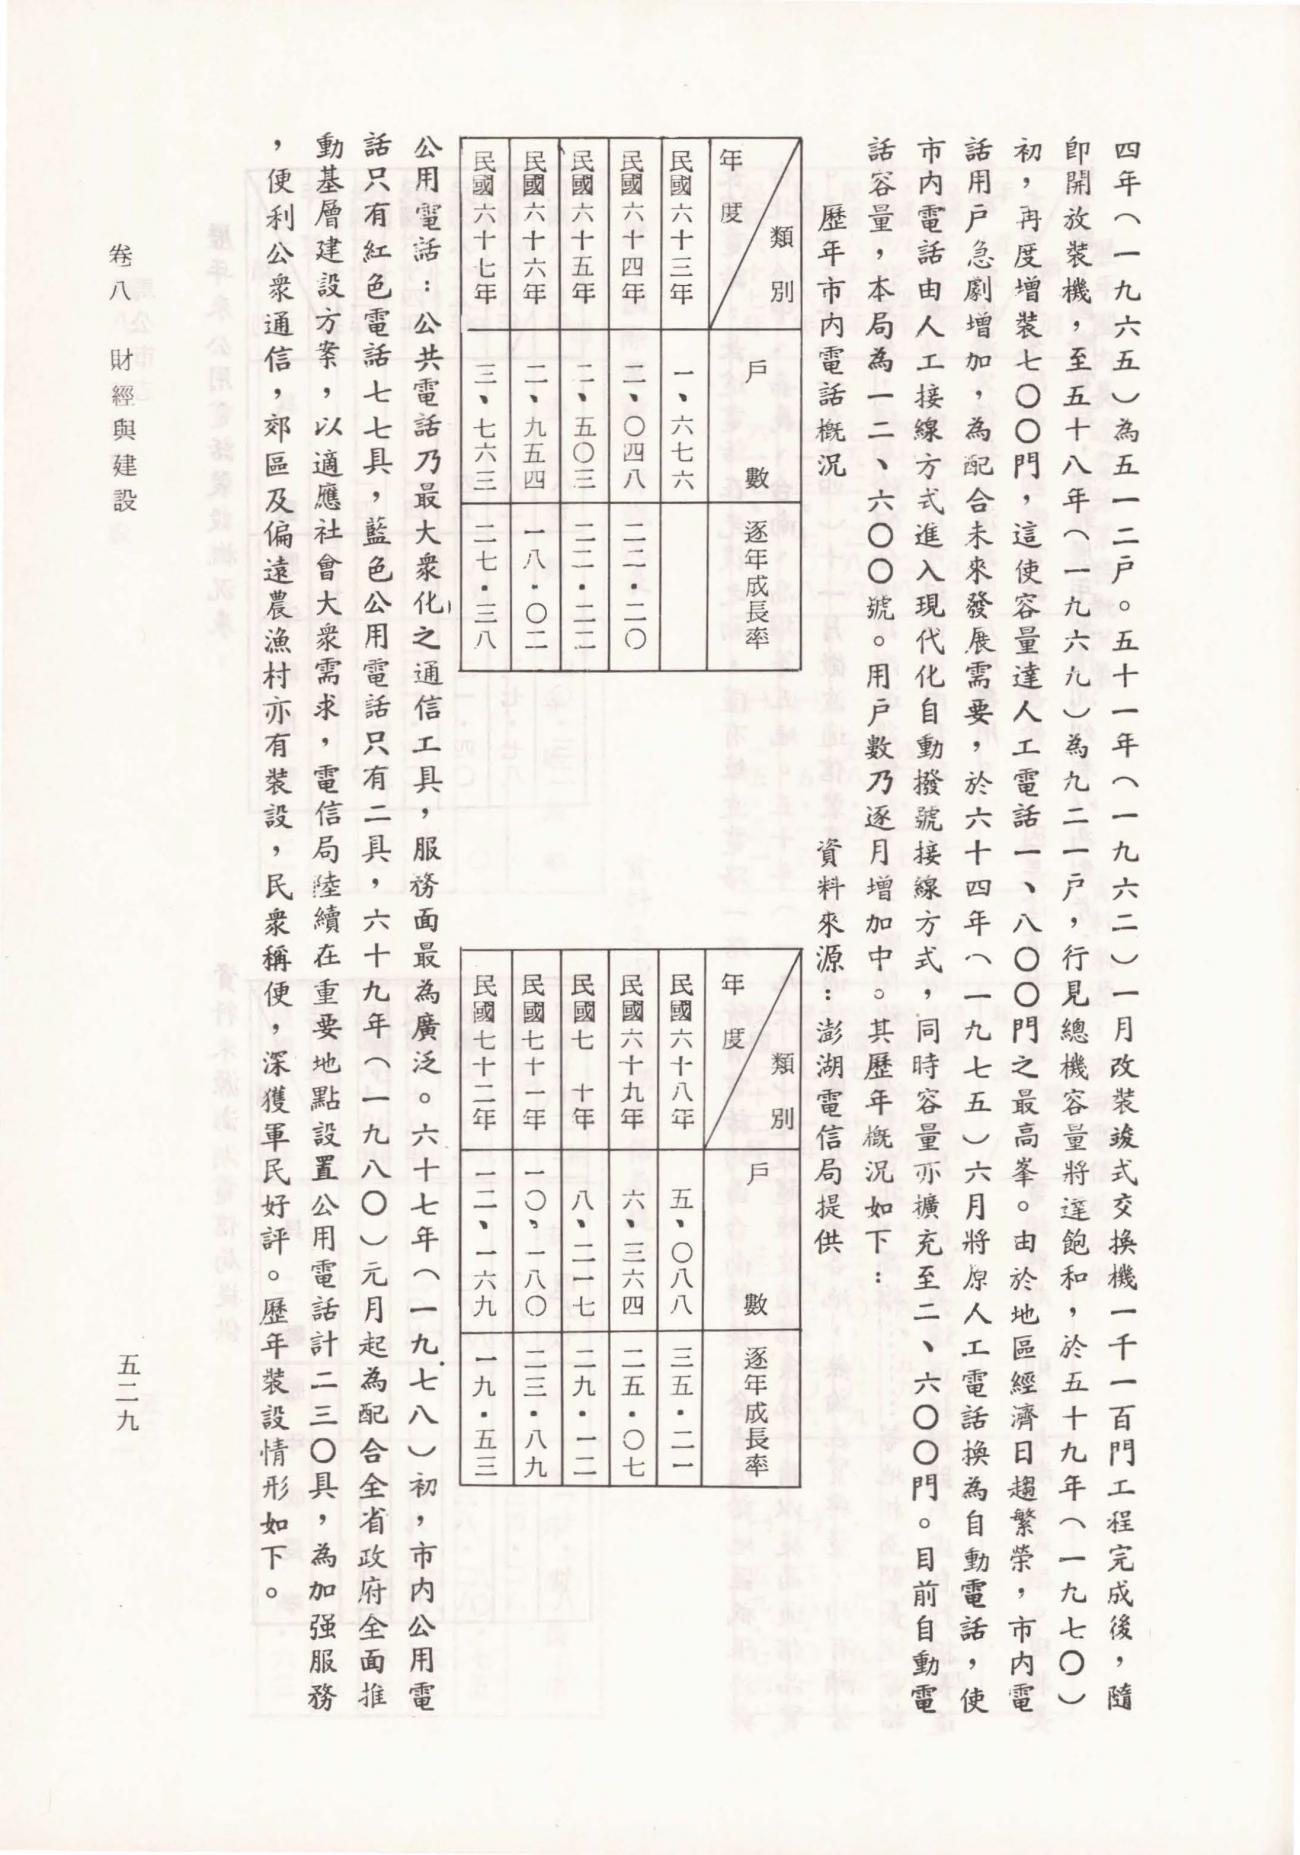 四年(一九六五)為五一二戶。五十一年(一九六二)一月改裝竣式交換機一千一百門工程完成後，隨
即開放裝機，至五十八年(一九六九)為九二一戶，行見總機容量將達飽和，於五十九年(一九七〇)
初，再度增裝七〇〇門，這使容量達人工電話一、八〇〇門之最高峯。由於地區經濟日趨繁榮，市內電
話用戶急劇增加，為配合未來發展需要，於六十四年(一九七五)六月將原人工電話換為自動電話，使
市內電話由人工接線方式進入現代化自動撥號接線方式，同時容量亦擴充至二、六〇〇門。目前自動電
話容量，本局為一二、六〇〇號。用戶數乃逐月增加中。其歷年概況如下：
歷年市內電話概況　資料來源：澎湖電信局提供
年度　類別　戶數　逐年成長率
民國六十三年　一、六七六
民國六十四年　二、〇四八　二二・二〇
民國六十五年　二、五〇三　二二・二二
民國六十六年　二、九五四　一八・〇二
民國六十七年　三、七六三　二七・三八
年度　類別　戶數　逐年成長率
民國六十八年　五、〇八八　三五・二一
民國六十九年　六、三六四　二五・〇七
民國七十年　八、二一七　二九・一二
民國七十一年　一〇、一八〇　二三・八九
民國七十二年　一二、一六九　一九・五三
公用電話：公共電話乃最大衆化之通信工具，服務面最為廣泛。六十七年(一九七八)初，市內公用電
話只有紅色電話七七具，藍色公用電話只有二具，六十九年(一九八〇)元月起為配合全省政府全面推
動基層建設方案，以適應社會大衆需求，電信局陸續在重要地點設置公用電話計二三〇具，為加强服務
，便利公衆通信，郊區及偏遠農漁村亦有裝設，民衆稱便，深獲軍民好評。歷年裝設情形如下。
卷八　財經與建設
五二九